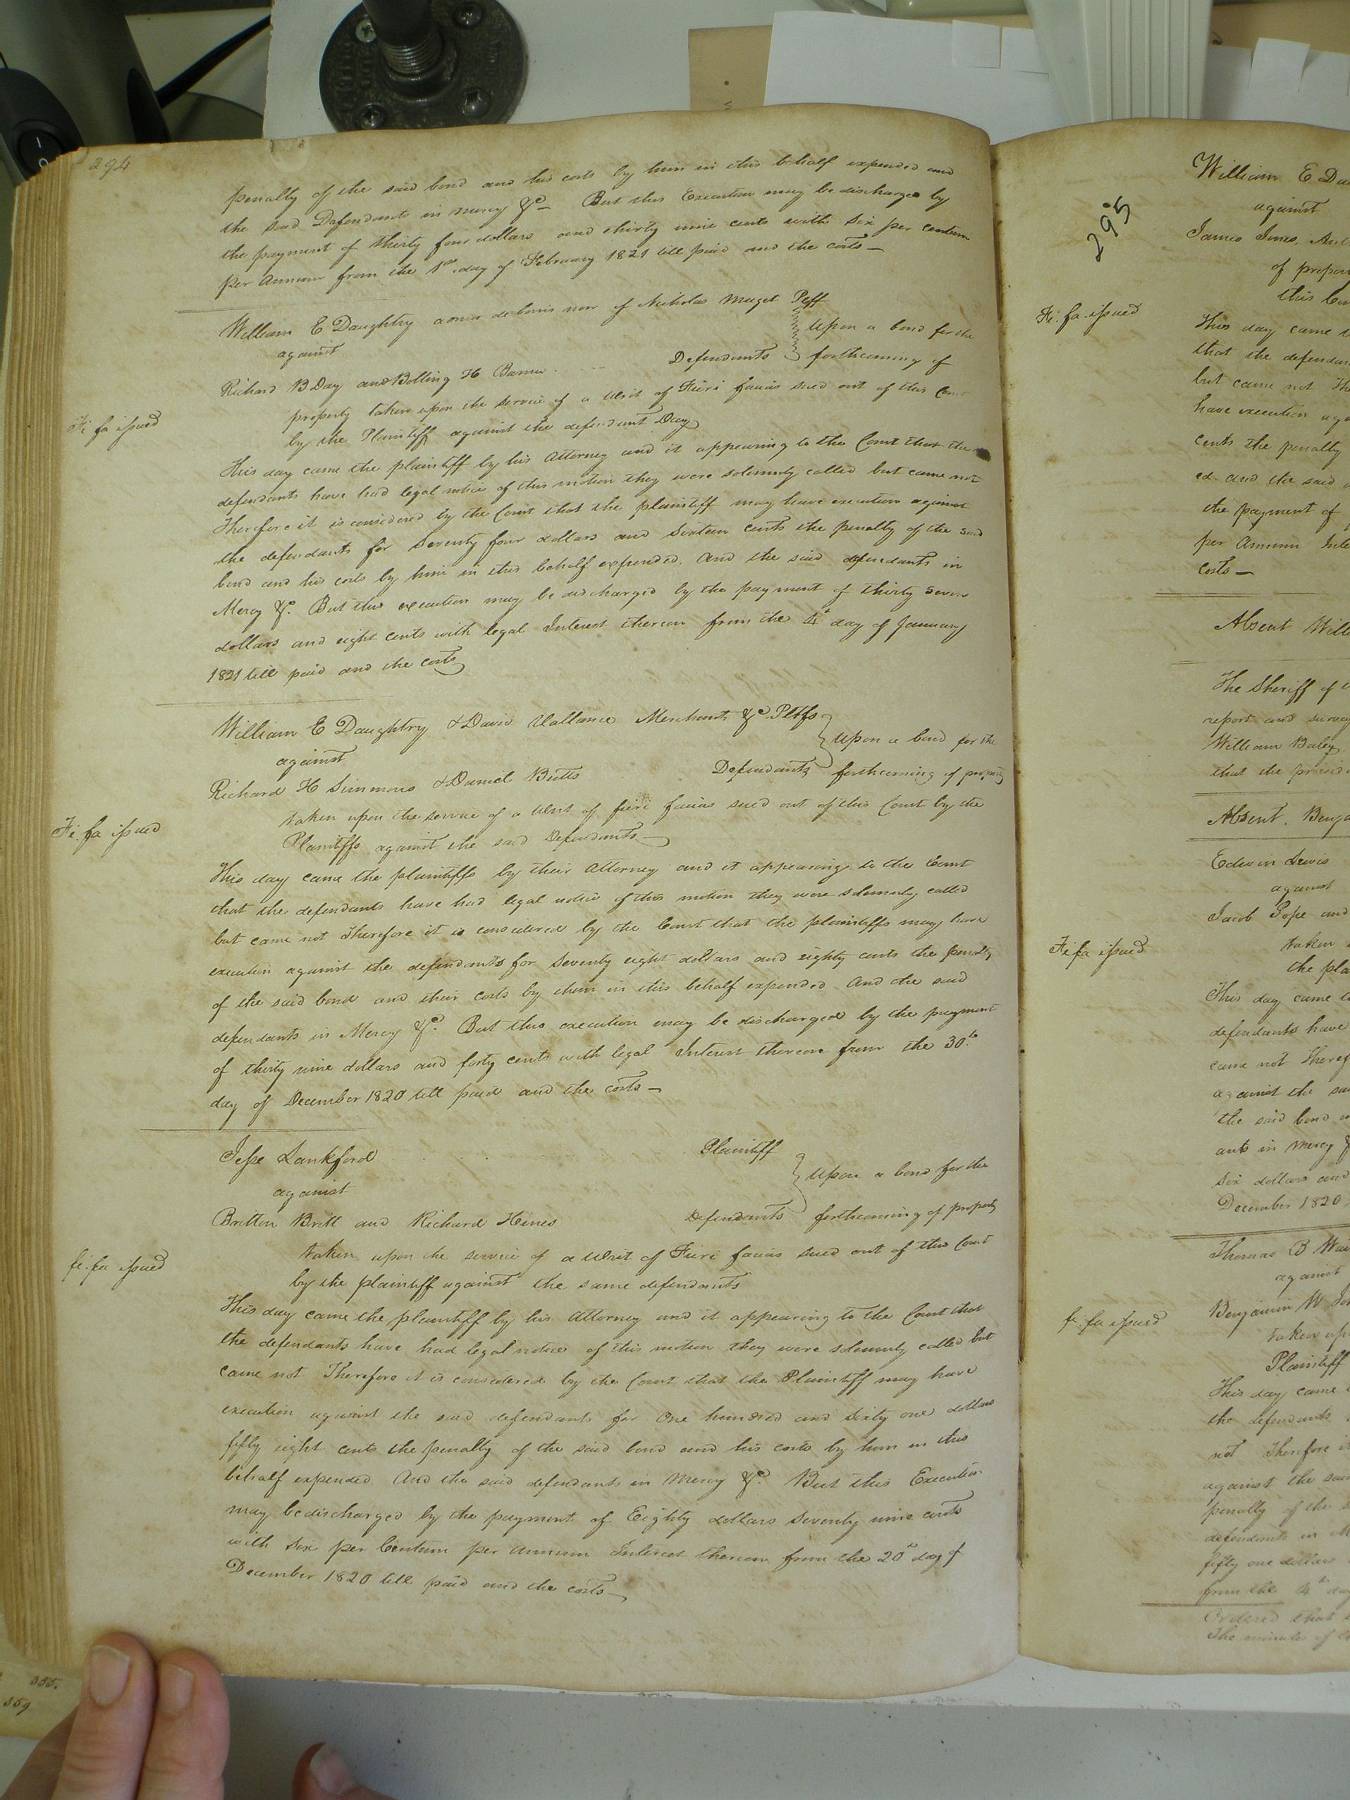 294
penalty of the said bond and his costs by him in this behalf expended and
the said Defendants in mercy &c— But this Execution may be discharge by
the payment of thirty four dollars and thirty nine cents with six per centum
per Annum from the 1st day of February 1821 till paid and the costs—
William E Daughtry who sues for Nicholas Maget Plff
against
Upon a bond for the
Richard B Day and Bolling H Defendants forthcoming of
property taken upon the service of a Writ of Fieri facias sued out of this
by the Plaintiff against the defendant Day
Fi fa issued
This day came the plaintiff by his Attorney and it appearing to the Court that the
defendants have had legal notice of this motion they were solemnly called but came not
Therefore it is considered by the Court that the plaintiff may have execution against
the defendants for Seventy four dollars and Sixteen cents the penalty of the said
bond and his costs by him in this behalf expended. And the said defendants in
Mercy &c. But this execution may be discharged by the payment of thirty seven
dollars and eight cents with legal Interest thereon from the 4th day of January
1821 till paid and the costs
William E Daughtry & David Vallance Merchants &c Pltfs
against
Upon a bond for the
Richard H Simmons & Daniel Butts Defendants forthcoming of property
taken upon the service of a Writ of fieri facias sued out of this Court by the
Plaintiffs against the said Defendants—
Fi. fa issued
This day came the plaintiffs by their Attorney and it appearing to the Court
that the defendants have had legal notice of this motion they were solemnly called
but came not Therefore it is considered by the Court that the plaintiffs may have
execution against the defendants for Seventy eight dollars and eighty cents the penalty
of the said bond and their costs by them in this behalf expended And the said
defendants in Mercy &c. But this execution may be discharged by the payment
of thirty nine dollars and forty cents with legal Interest thereon from the 30th
day of December 1820 till paid and the costs—
Jesse Lankford Plaintiff
against
Upon a bond for the
Britton Britt and Richard Hines Defendants forthcoming of property
taken upon the service of a Writ of Fieri facias sued out of this Court
by the plaintiff against the same defendants
fi. fa issued
This day came the plaintiff by his Attorney and it appearing to the Court that
the defendants have had legal notice of this motion they were solemnly called but
came not Therefore it is considered by the Court that the Plaintiff may have
execution against the said defendants for One hundred and sixty one dollars
fifty eight cents the penalty of the said bond and his costs by him in this
behalf expended And the said defendants in Mercy &c. But this Execution
may be discharged by the payment of Eighty dollars seventy nine cents
with Six per Centum per Annum Interest thereon from the 20th day of
December 1820 till paid and the costs
295
William E
against
James Jones
of
this
Fi. fa issued
This day came
that the
but came not
have execution
cents the penalty
ed and the said
the payment of
per Annum
costs—
Absent
The Sheriff of
report and
William
that the
Absent.
Edwin Lewis
against
Jacob Pope and
taken
the
Fi fa issued
This day came
defendants have
came not
against the
the said bond
ants in Mercy
Six dollars and
December 1820
Thomas B
against
Benjamin W
taken
Plaintiff
fi. fa issued
This day came
the defendants
not Therefore
against the said
penalty of the
defendants in
fifty one dollars
from the 4th day
Ordered that
The minutes of
355.
359